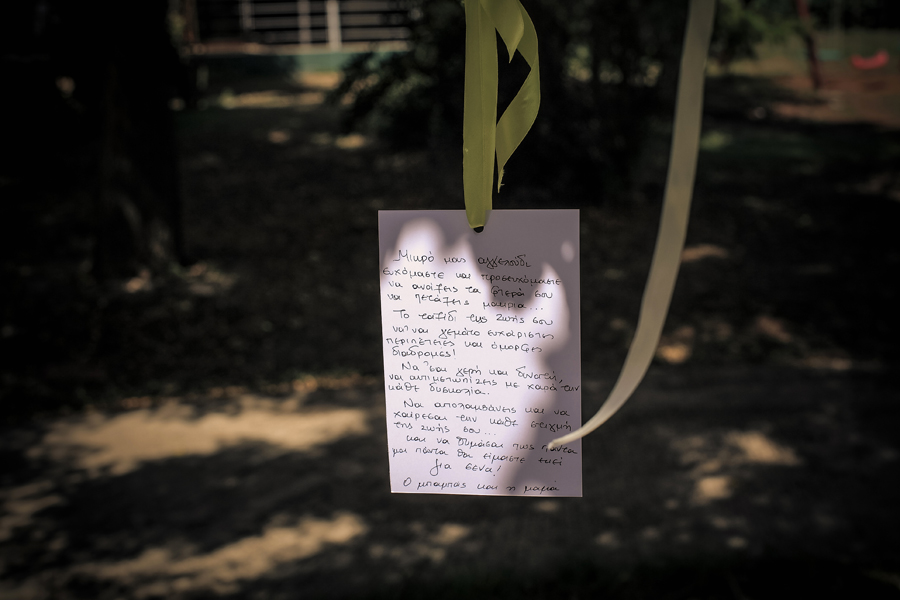 Μικρό μας αγγελούδι
ευχόμαστε και προσευχόμαστε
να ανοίξεις τα φτερά σου
να πετάξεις μακριά...
Το ταξίδι της ζωής σου
να 'ναι γεμάτο ευχάριστες
περιπέτειες και όμορφες
διαδρομές!
Να 'σαι γερή και δυνατή,
να αντιμετωπίζεις με χαρά την
κάθε δυσκολία..
Να απολαμβάνεις και να
χαίρεσαι την κάθε στιγμή
της ζωής σου...
και να θυμάσαι πως πάντα
μα πάντα θα είμαστε εκεί
για σένα!
Ο μπαμπάς και η μαμά